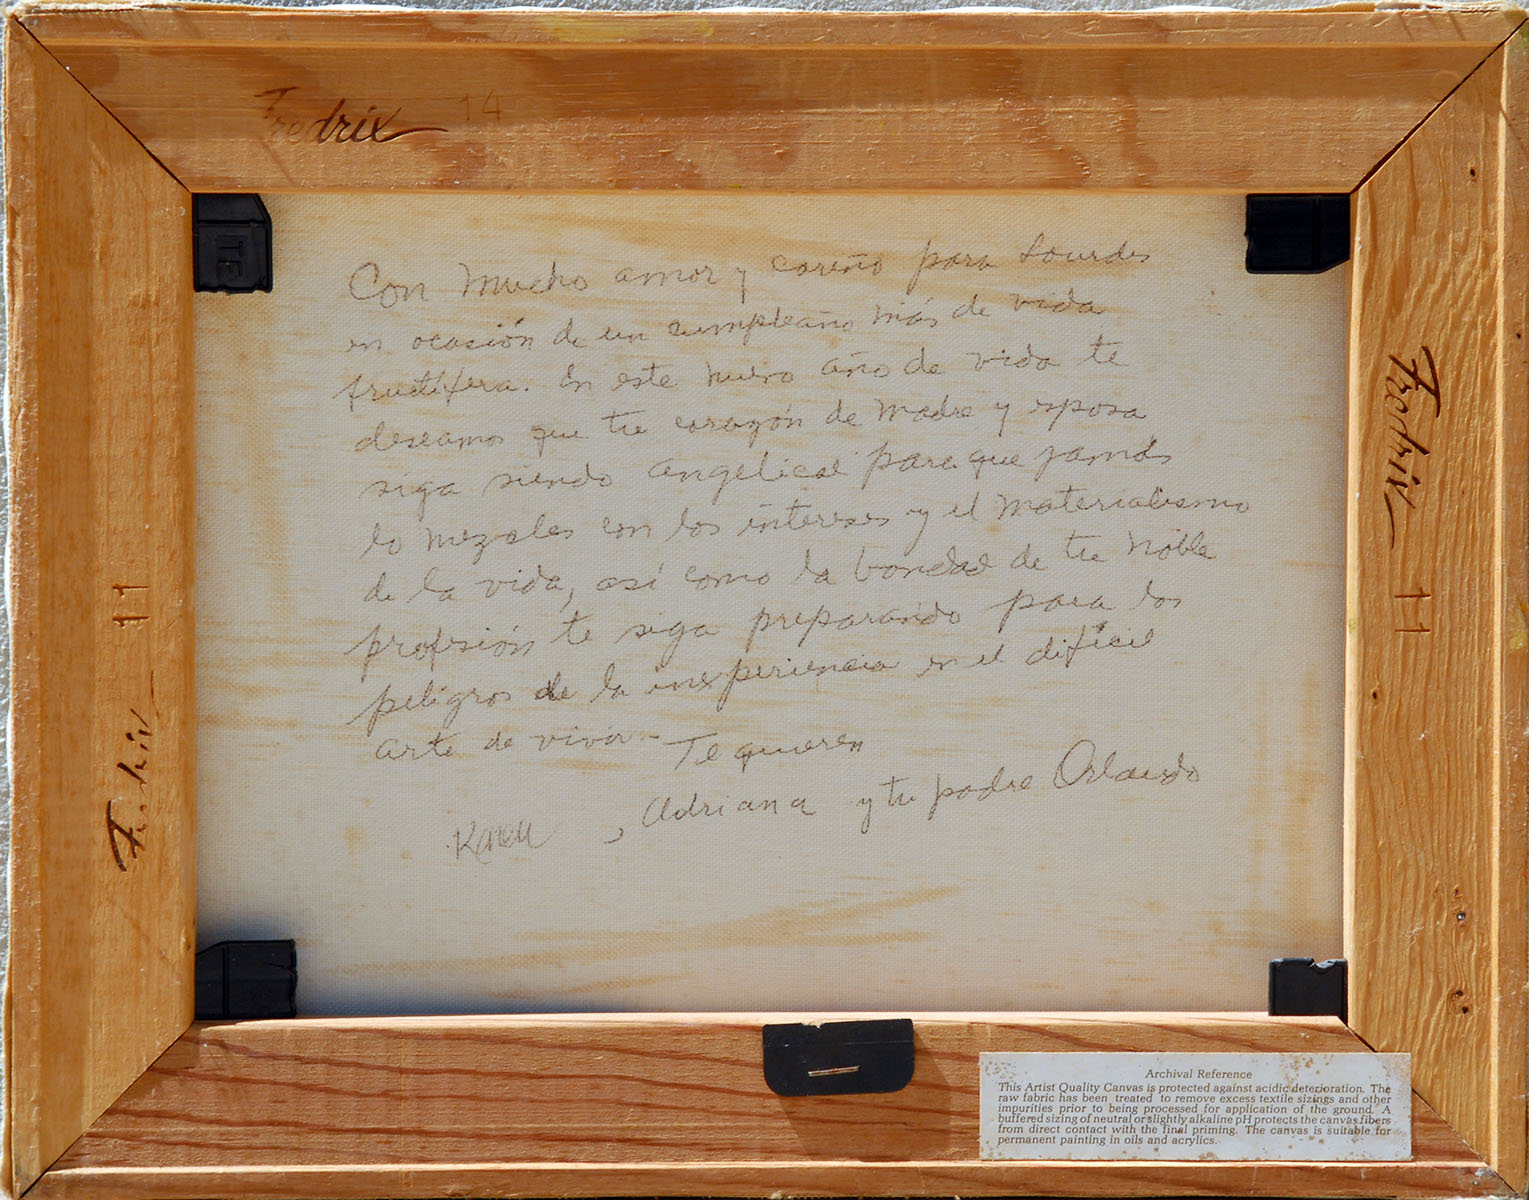 Fredrix 14
Con mucho amor y cariño para Lourdes
en ocasión de un cumpleaño más de vida
fructífera. En este nuevo año de vida te
deseamos que tu corazón de madre y esposa
siga siendo angelical para que jamás
lo mezcles con los intereses y el materialismo
de la vida, así como la bondad de tu noble
profesión te siga preparando para los
peligros de la inexperiencia en el difícil
arte de vivir - Te quieren
Karen , Adriana y tu padre Orlando
Fredrix 11
Fredrix 11
Archival Reference
This Artist Quality Canvas is protected against acidic deterioration. The
raw fabric has been treated to remove excess textile sizings and other
impurities prior to being processed for application of the ground. A
buffered sizing of neutral or slightly alkaline pH protects the canvas fibers
from direct contact with the final priming. The canvas is suitable for
permanent painting in oils and acrylics.